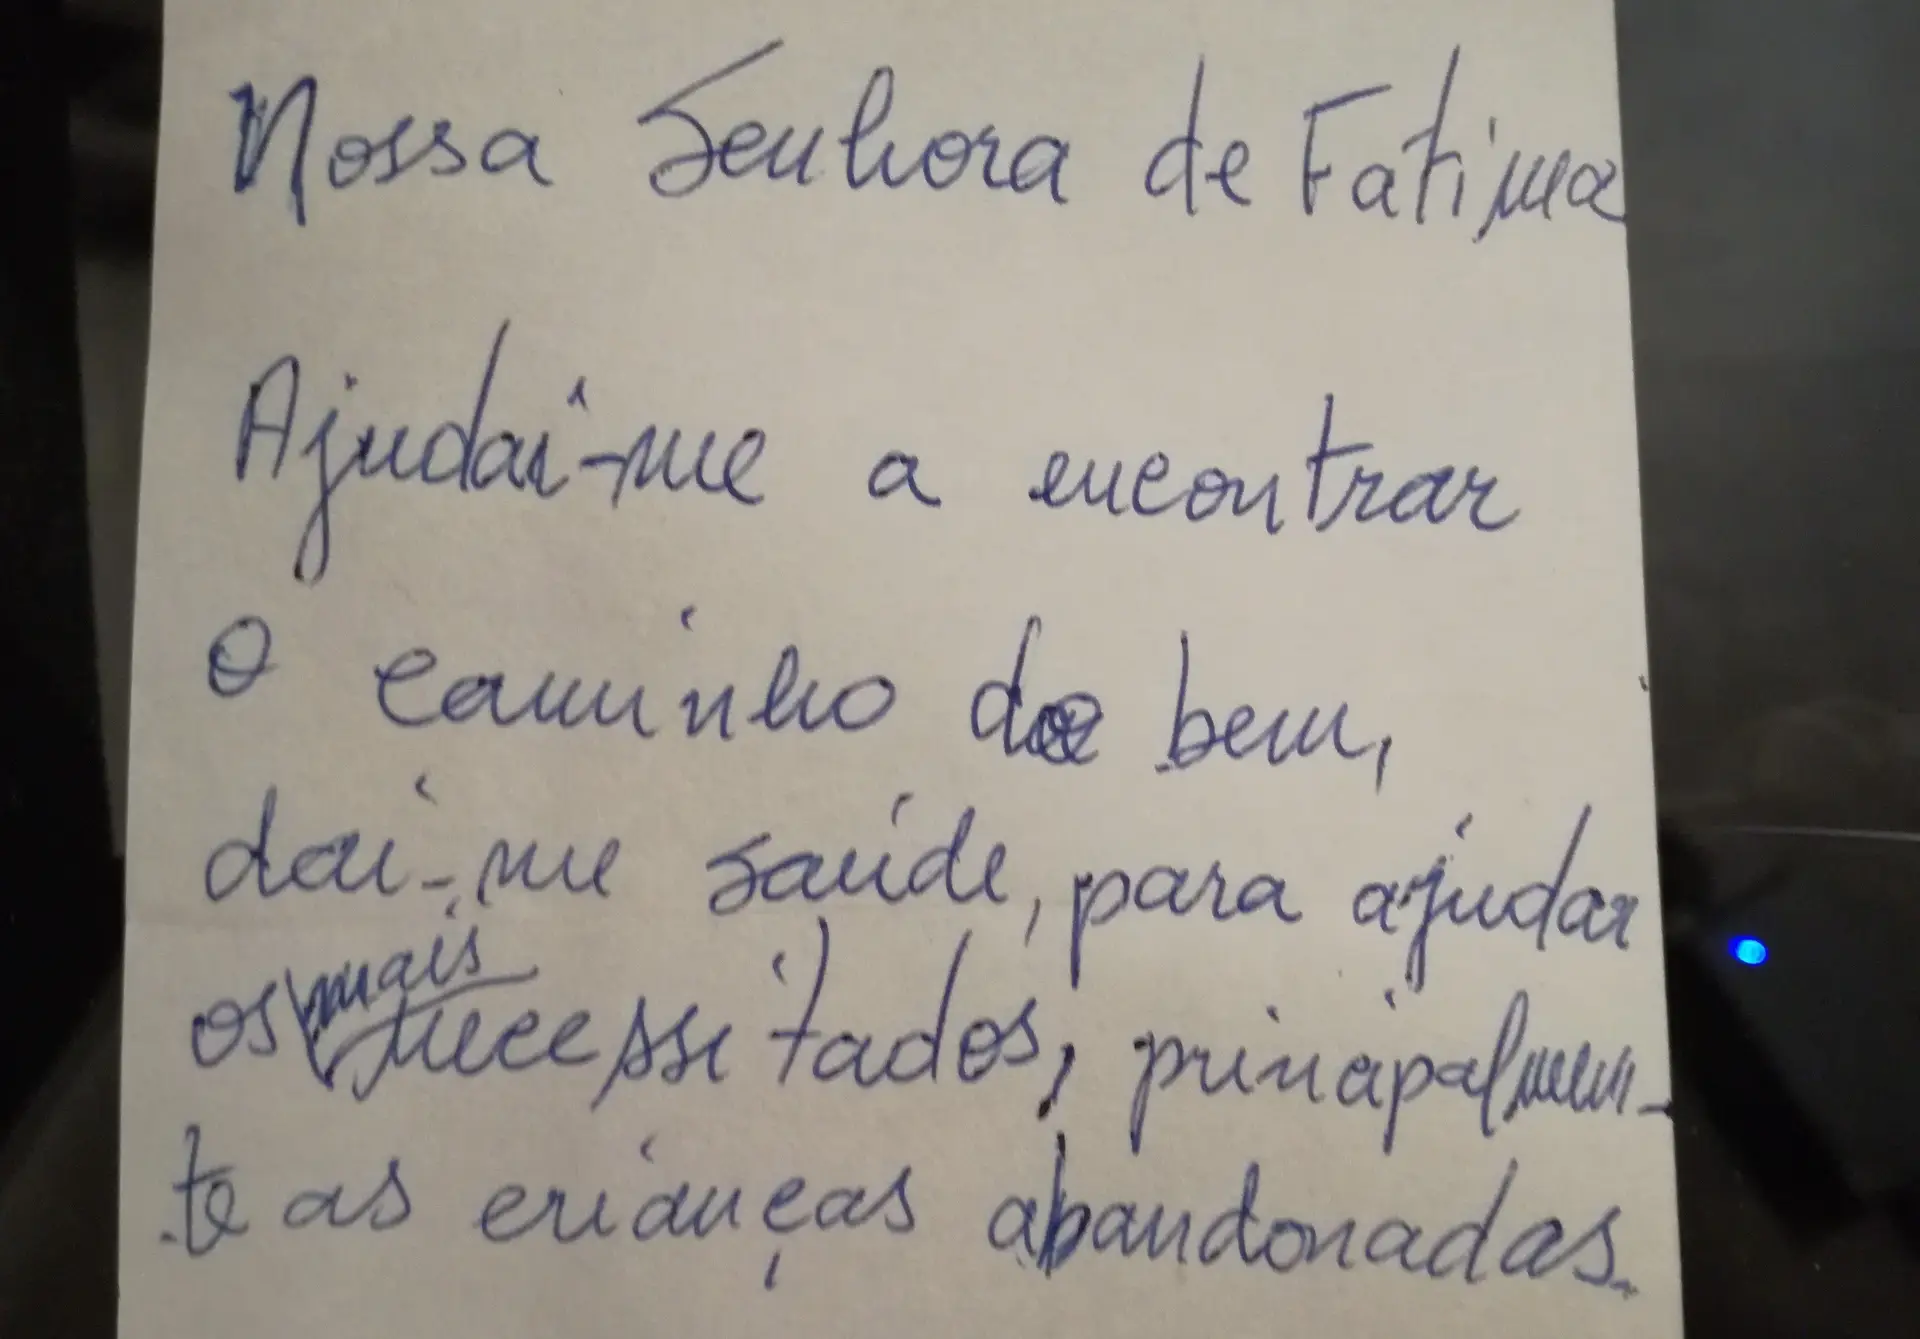 Nossa Senhora de Fatima
Ajudai-me a encontrar
o caminho do bem,
dai-me saúde, para ajudar
os mais necessitados, principalmen-
te as crianças abandonadas.